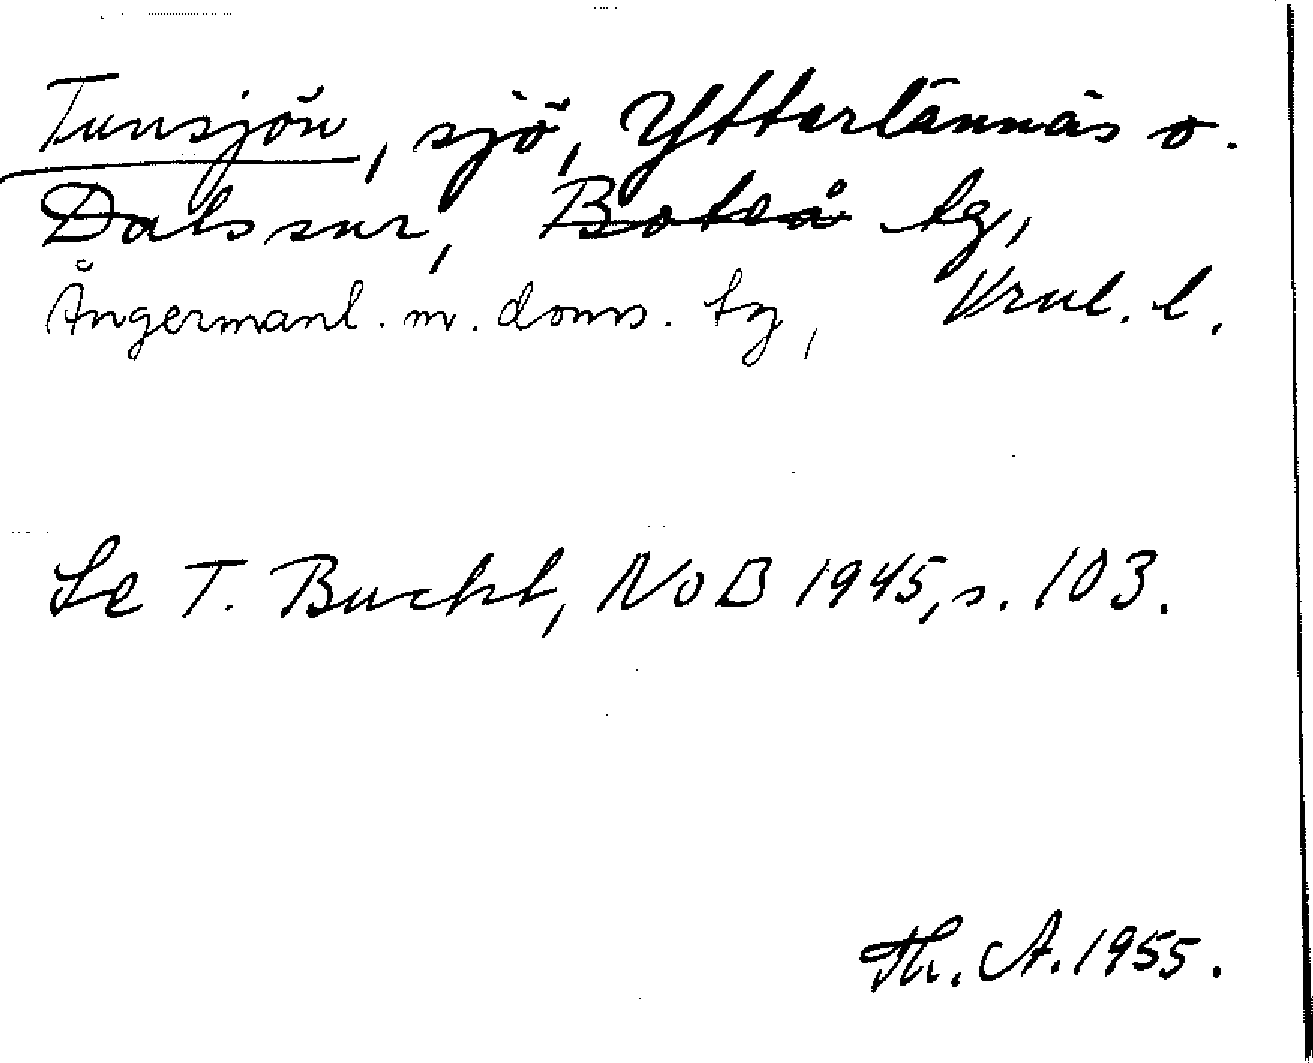 Tunsjön, sjö, Ytterlännäs o.
Dals snr, Boteå tg,
Ångermanl. m. doms. tg, Vrnl. l.
Se T. Bucht, NoB 1945, s. 103.
Th. A. 1955.